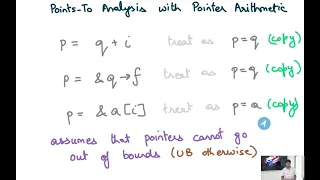 Points-To Analysis with Pointer Arithmetic
p = q + i treat as p = q (copy)
p = &q → f treat as p = q (copy)
p = &a[i] treat as p = a (copy)
assumes that pointers cannot go
out of bounds (UB otherwise)